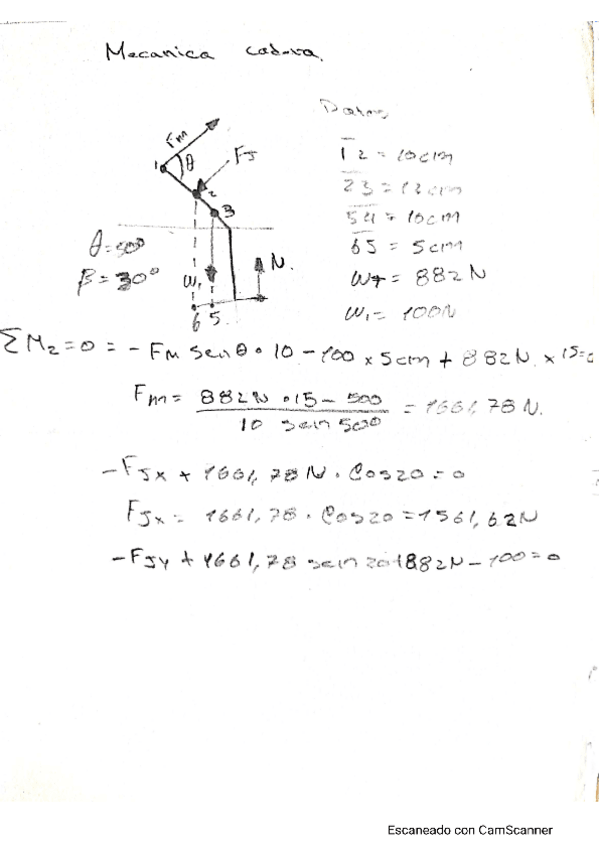 Mecanica cadera.
Datos
Fm
1
θ
FJ
2
3
θ=50°
β=30°
W1
N.
6 5
12 = 10cm
23 = 12cm
54 = 10cm
65 = 5cm
WT = 882N
W1 = 100N
ΣM2=0 = -FM senθ · 10 - 100 x 5cm + 882N x 15=0
Fm = 882N · 15 - 500 / 10 sen 50° = 1661,78 N.
-FJx + 1661,78N · Cos20 = 0
FJx = 1661,78 · Cos20 = 1561,62N
-FJy + 1661,78 sen 20 + 882N - 100 = 0
Escaneado con CamScanner